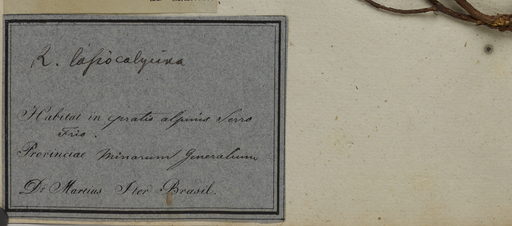 L. lasiocalycina
Habitat in pratis alpinis Serro
Frio.
Provinciae Minarum Generalium
Dr Martius Iter Brasil.